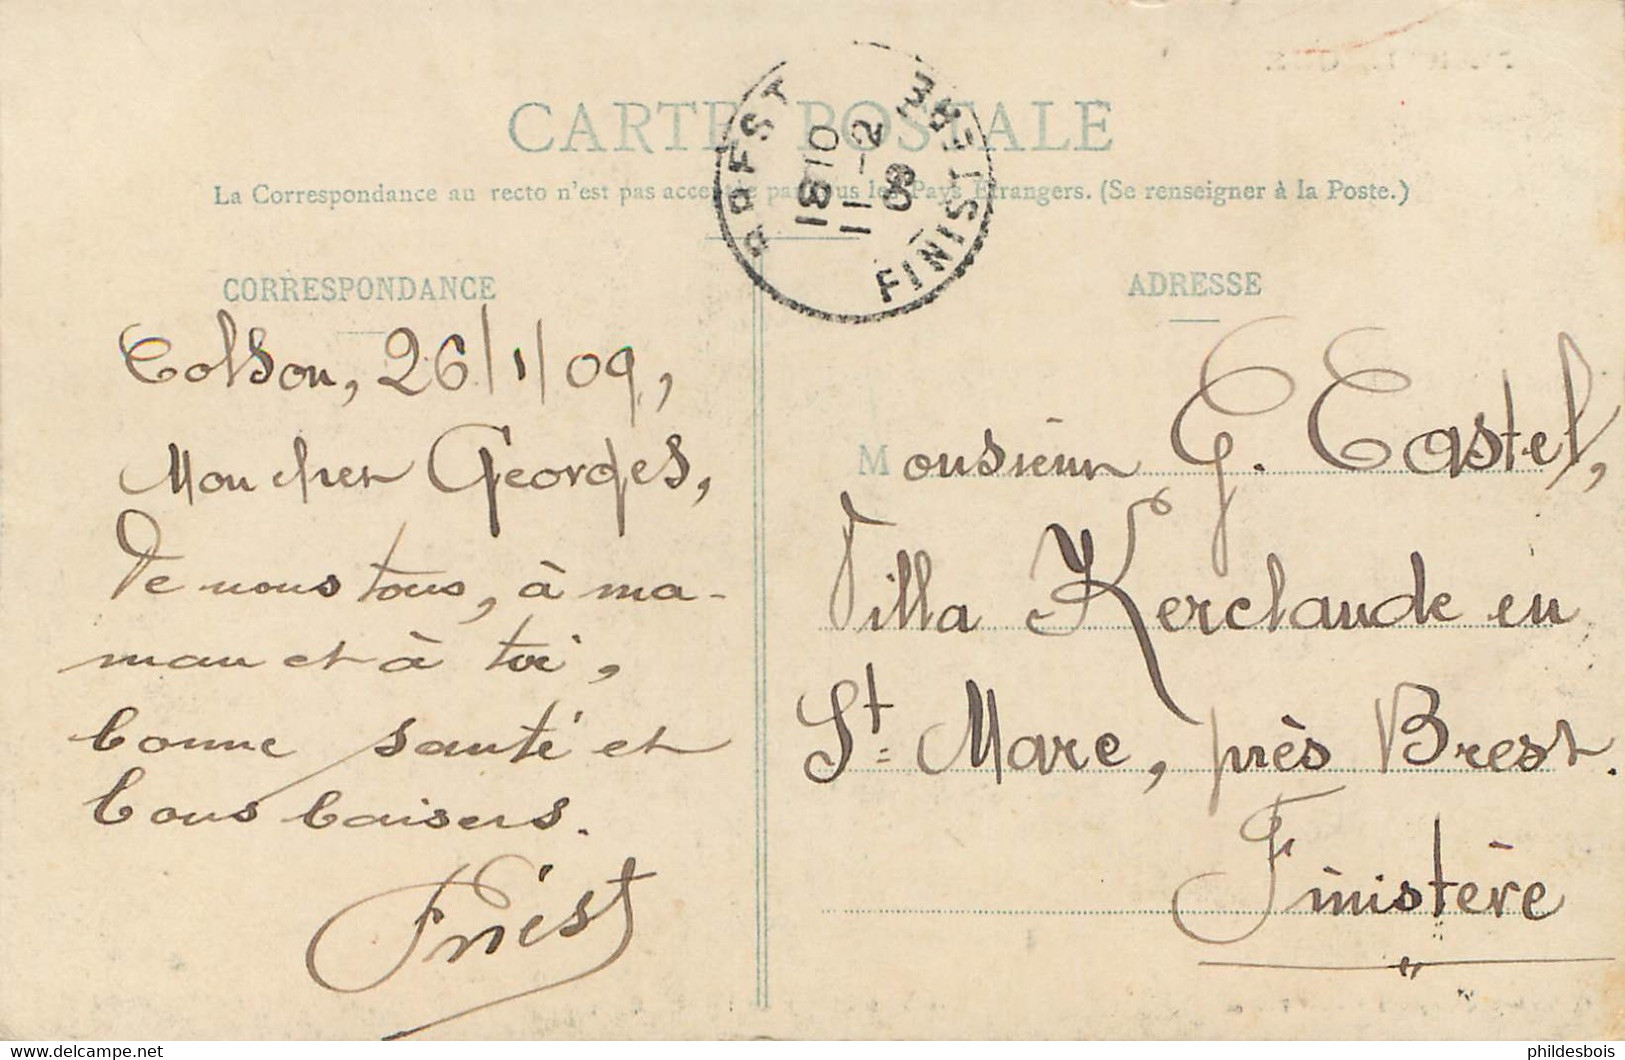 CARTE POSTALE
La Correspondance au recto n'est pas acceptée par tous les Pays Etrangers. (Se renseigner à la Poste.)
BREST
18 10
11 - 2
09
FINISTERE
CORRESPONDANCE
Colson, 26/1/09,
Mon cher Georges,
De nous tous, à ma-
man et à toi,
bonne santé et
bons baisers.
ADRESSE
Monsieur G. Castel,
Villa Kerclaude en
St Marc, près Brest.
Finistère
phildesbois